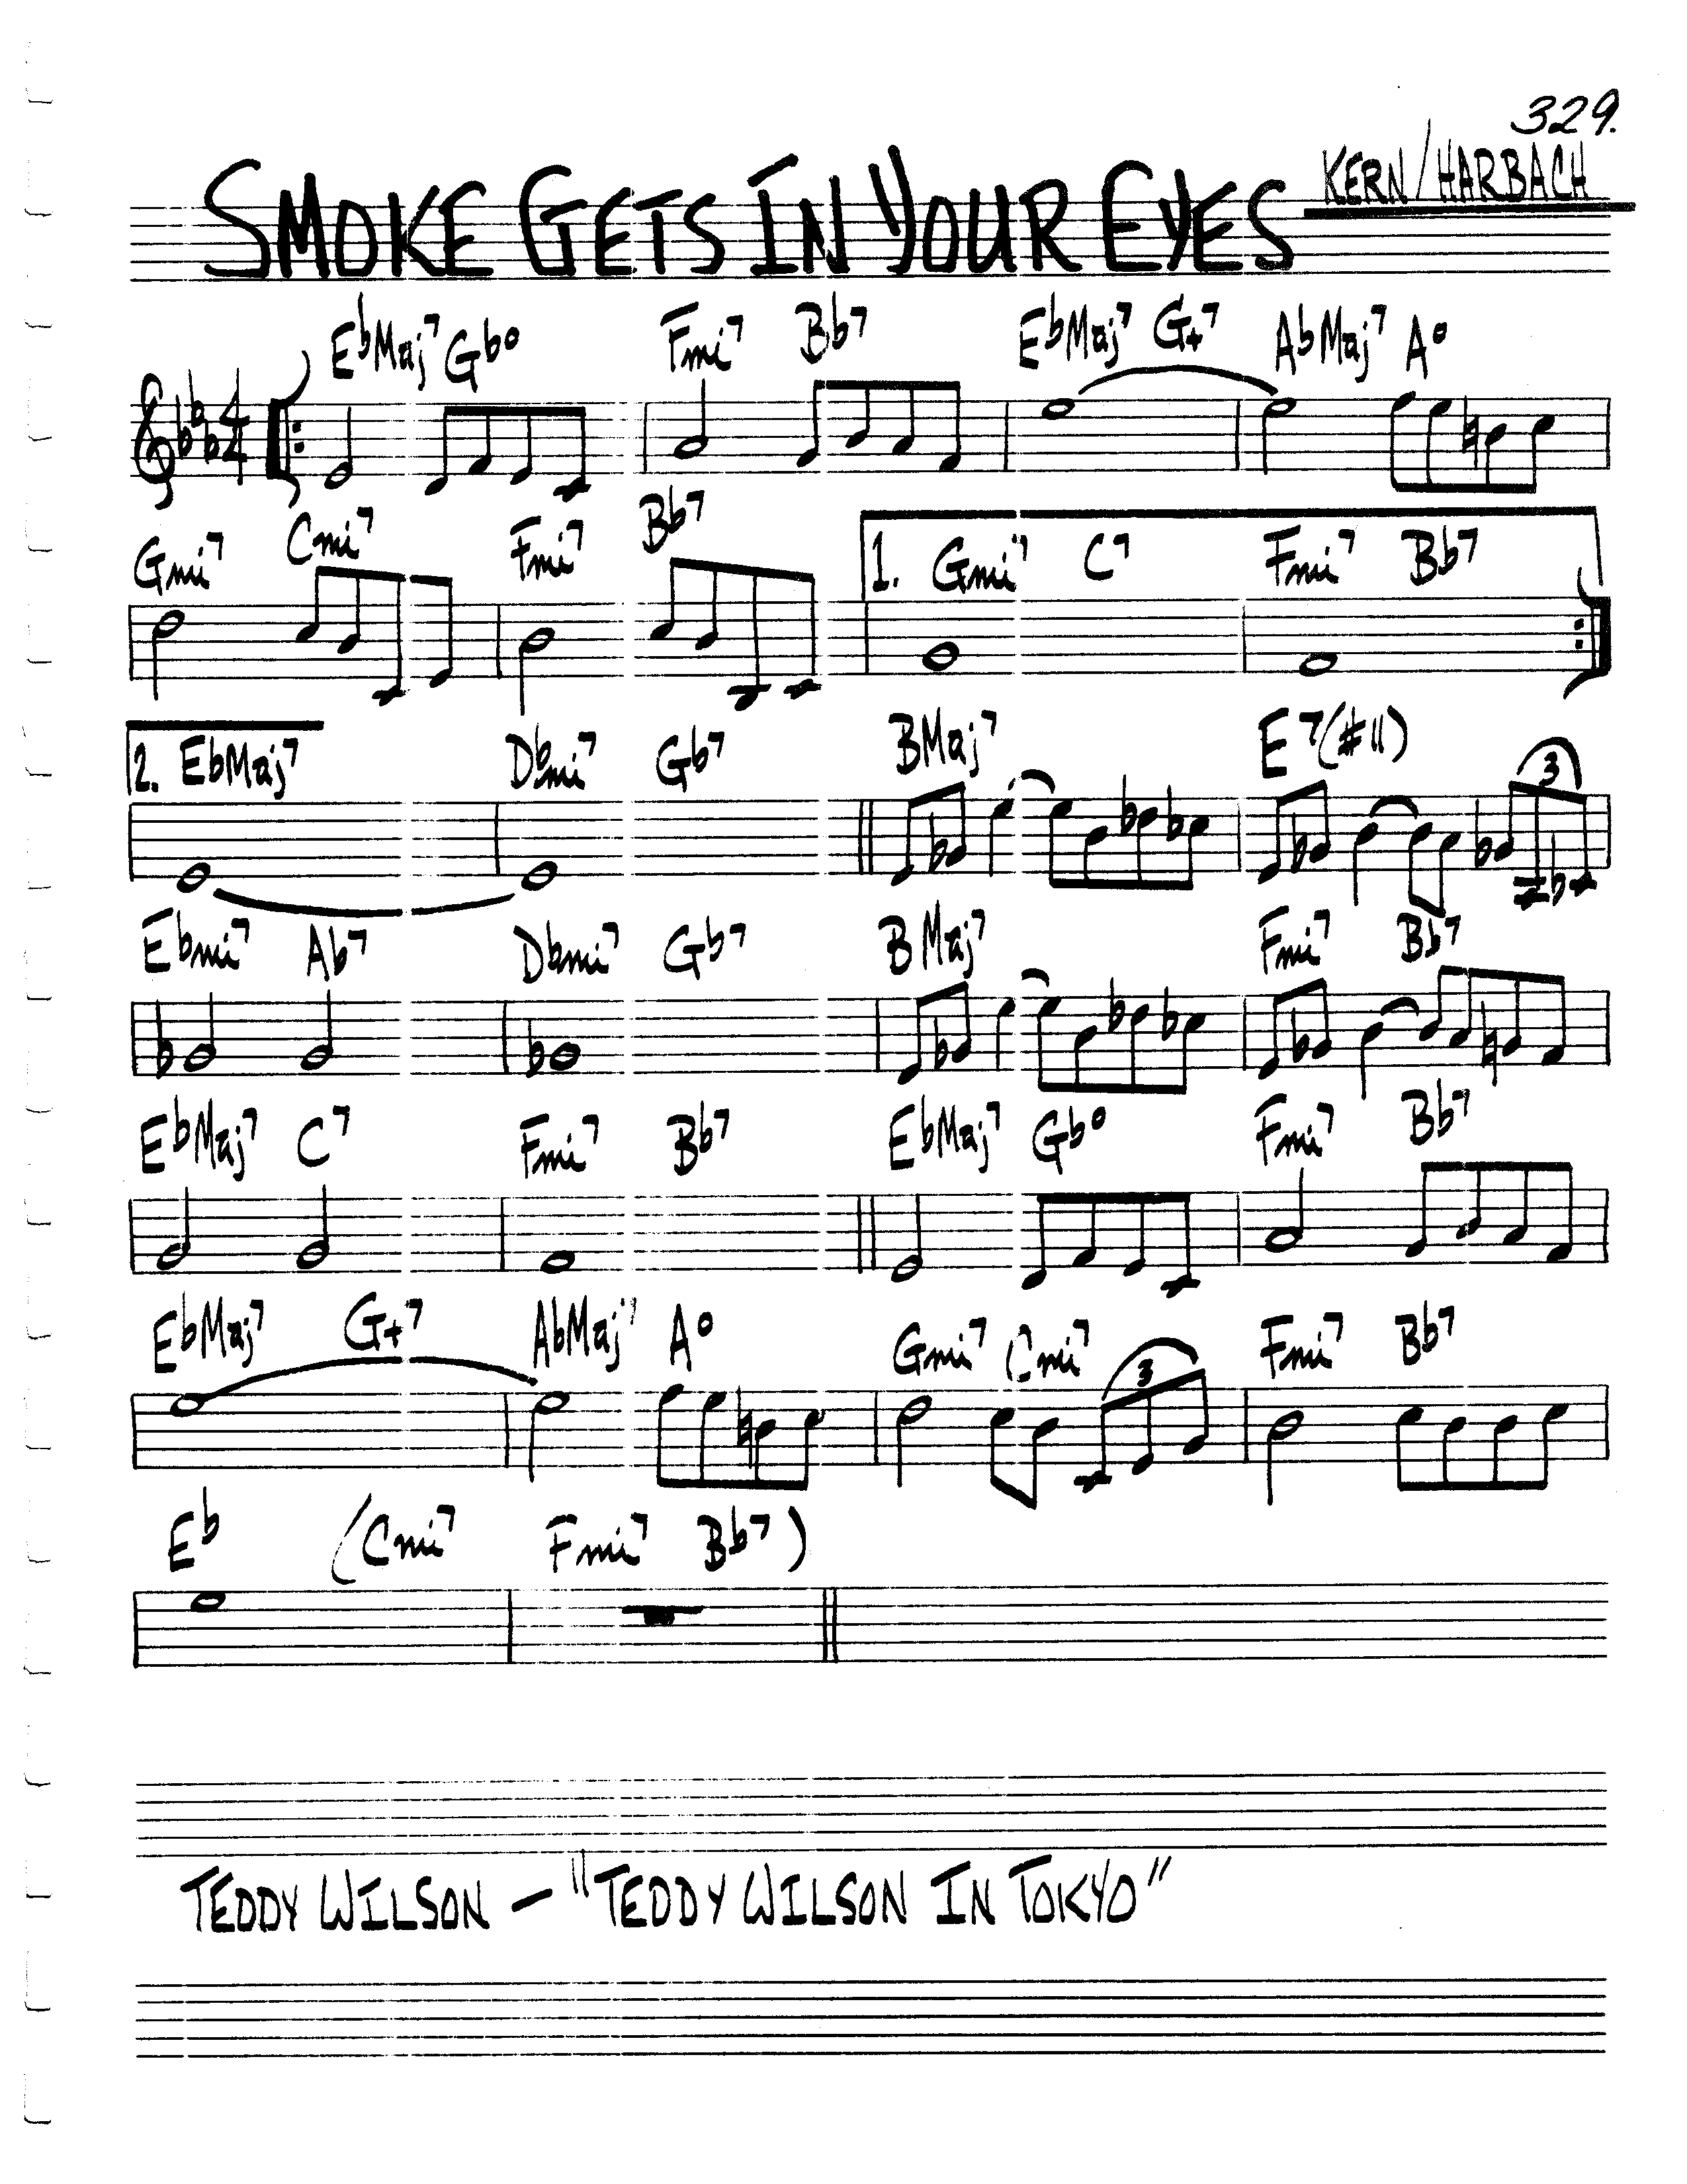 329.
KERN/HARBACH
SMOKE GETS IN YOUR EYES
EbMaj7 Gbo Fmi7 Bb7 EbMaj7 G+7 AbMaj7 Ao
4/4
Gmi7 Cmi7 Fmi7 Bb7 1. Gmi7 C7 Fmi7 Bb7
2. EbMaj7 Dbmi7 Gb7 BMaj7 E7(#11)
3
Ebmi7 Ab7 Dbmi7 Gb7 BMaj7 Fmi7 Bb7
EbMaj7 C7 Fmi7 Bb7 EbMaj7 Gbo Fmi7 Bb7
EbMaj7 G+7 AbMaj7 Ao Gmi7 Cmi7 Fmi7 Bb7
3
Eb (Cmi7 Fmi7 Bb7)
TEDDY WILSON — "TEDDY WILSON IN TOKYO"